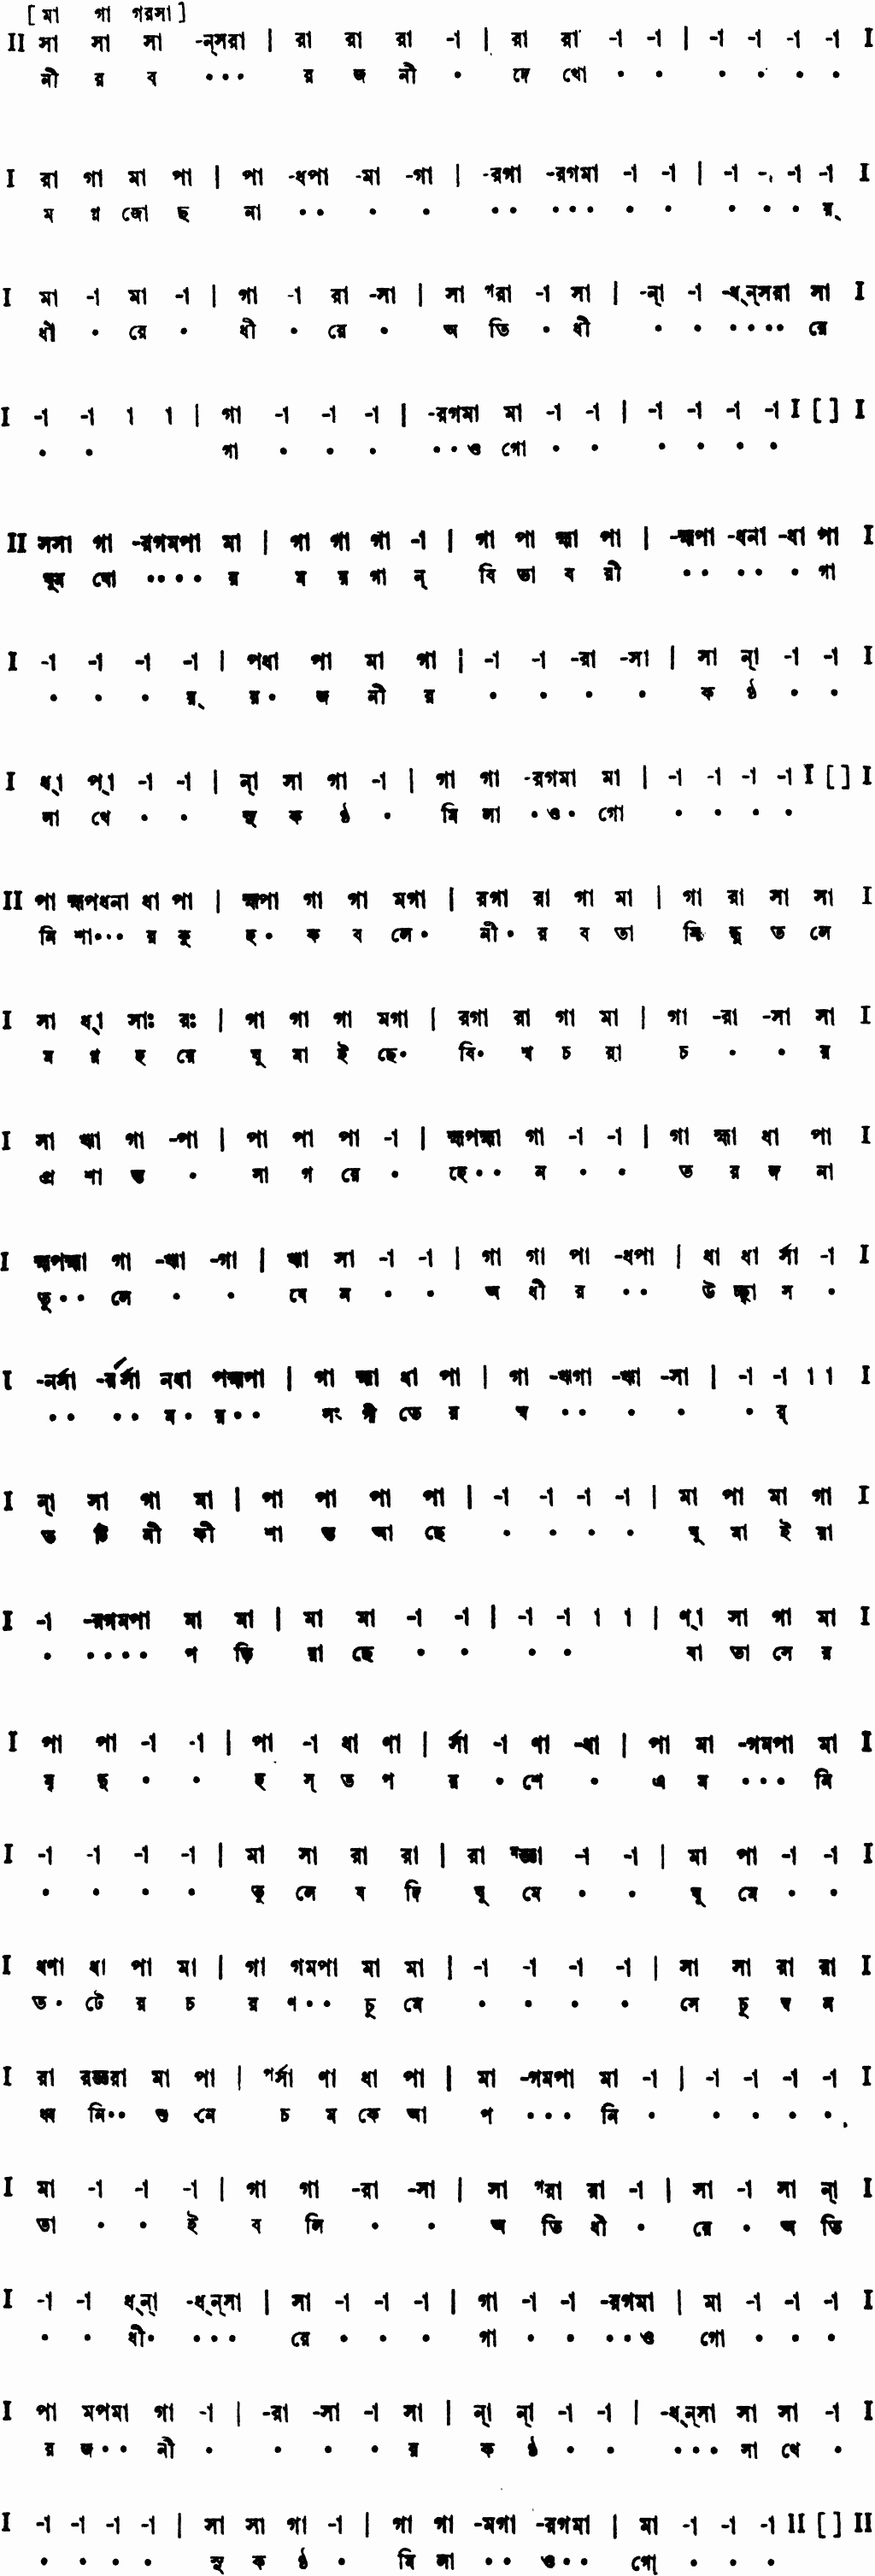 [ মা গা গরসা ]
II সা সা সা -ন্‌সরা | রা রা রা -া | রা রা -া -া | -া -া -া -া I
নী র ব ••• র জ নী • দে খো • • • • • •
I রা গা মা পা | পা -ধপা -মা -গা | -রগা -রগমা -া -া | -া -া -া -া I
ম গ্ন জো ছ না •• • • •• ••• • • • • • য়্
I মা -া মা -া | গা -া রা -সা | সা গরা -া সা | -ন্‌া -া -ধ্‌ন্‌সরা সা I
ধী • রে • ধী • রে • অ তি • ধী • • •••• রে
I -া -া া া | গা -া -া -া | -রগমা মা -া -া | -া -া -া -া I [ ] I
• • গা • • • ••ও গো • • • • • •
II সসা গা -রগমপা মা | গা গা গা -া | গা পা হ্মা পা | -হ্মপা -ধনা -ধা পা I
ঘুম ঘো •••• র ম র গা ন্ বি ভা ব রী •• •• • গা
I -া -া -া -া | পধা পা মা গা | -া -া -রা -সা | সা ন্‌া -া -া I
• • • য়্ র• জ নী র • • • • ক ণ্ঠ • •
I ধ্‌া প্‌া -া -া | ন্‌া সা গা -া | গা গা -রগমা মা | -া -া -া -া I [ ] I
সা থে • • সু ক ণ্ঠ • মি লা •ও• গো • • • •
II পা হ্মপধনা ধা পা | হ্মপা গা গা মগা | রগা রা গা মা | গা রা সা সা I
নি শা••• র কু হ• ক ব লে• নী• র ব তা সি ন্ধু ত লে
I সা ধ্‌া সাঃ রঃ | গা গা গা মগা | রগা রা গা মা | গা -রা -সা সা I
ম গ্ন হ য়ে ঘু মা ই ছে• বি• শ্ব চ রা চ • • র
I সা ঋা গা -পা | পা পা পা -া | হ্মপহ্মা গা -া -া | গা হ্মা ধা পা I
প্র শা ন্ত • সা গ রে • হে•• ন • • ত র ঙ্গ না
I হ্মপহ্মা গা -ঋা -গা | ঋা সা -া -া | গা গা পা -ধপা | ধা ধা র্সা -া I
তু•• লে • • যে ন • • অ ধী র •• উ চ্ছ্বা স •
I -নর্সা -র্রর্সা নধা পহ্মপা | গা হ্মা ধা পা | গা -ঋগা -ঋা -সা | -া -া া া I
•• •• ম• য়•• সং গী তে র স্ব •• • • • র্
I ন্‌া সা গা মা | পা পা পা পা | -া -া -া -া | মা পা মা গা I
ত টি নী কী শা ন্ত আ ছে • • • • ঘু মা ই য়া
I -া -রগমপা মা মা | মা মা -া -া | -া -া া া | ণ্‌া সা গা মা I
• •••• প ড়ি য়া ছে • • • • বা তা সে র
I পা পা -া -া | পা -া ধা ণা | র্সা -া ণা -ধা | পা মা -গমপা মা I
মৃ দু • • হ স্ ত প র • শে • এ ম ••• নি
I -া -া -া -া | মা সা রা রা | রা মজ্ঞা -া -া | মা পা -া -া I
• • • • ভু লে য দি ঘু মে • • ঘু মে • •
I ধণা ধা পা মা | গা গমপা মা মা | -া -া -া -া | সা সা রা রা I
ত• টে র চ র ণ•• চু মে • • • • সে চু ম্ব ন
I রা রজ্ঞরা মা পা | পর্সা ণা ধা পা | মা -গমপা মা -া | -া -া -া -া I
ধ্ব নি•• শু নে চ ম কে আ প ••• নি • • • • •
I মা -া -া -া | গা গা -রা -সা | সা গরা রা -া | সা -া সা ন্‌া I
তা • • ই ব লি • • অ তি ধী • রে • অ তি
I -া -া ধ্‌ন্‌া -ধ্‌ন্‌সা | সা -া -া -া | গা -া -া -রগমা | মা -া -া -া I
• • ধী• ••• রে • • • গা • • ••ও গো • • •
I পা মপমা গা -া | -রা -সা -া সা | ন্‌া ন্‌া -া -া | -ধ্‌ন্‌সা সা সা -া I
র জ•• নী • • • • র ক ণ্ঠ • • ••• সা থে •
I -া -া -া -া | সা সা গা -া | গা গা -মগা -রগমা | মা -া -া -া II [ ] II
• • • • সু ক ণ্ঠ • মি লা •• ও•• গো • • •